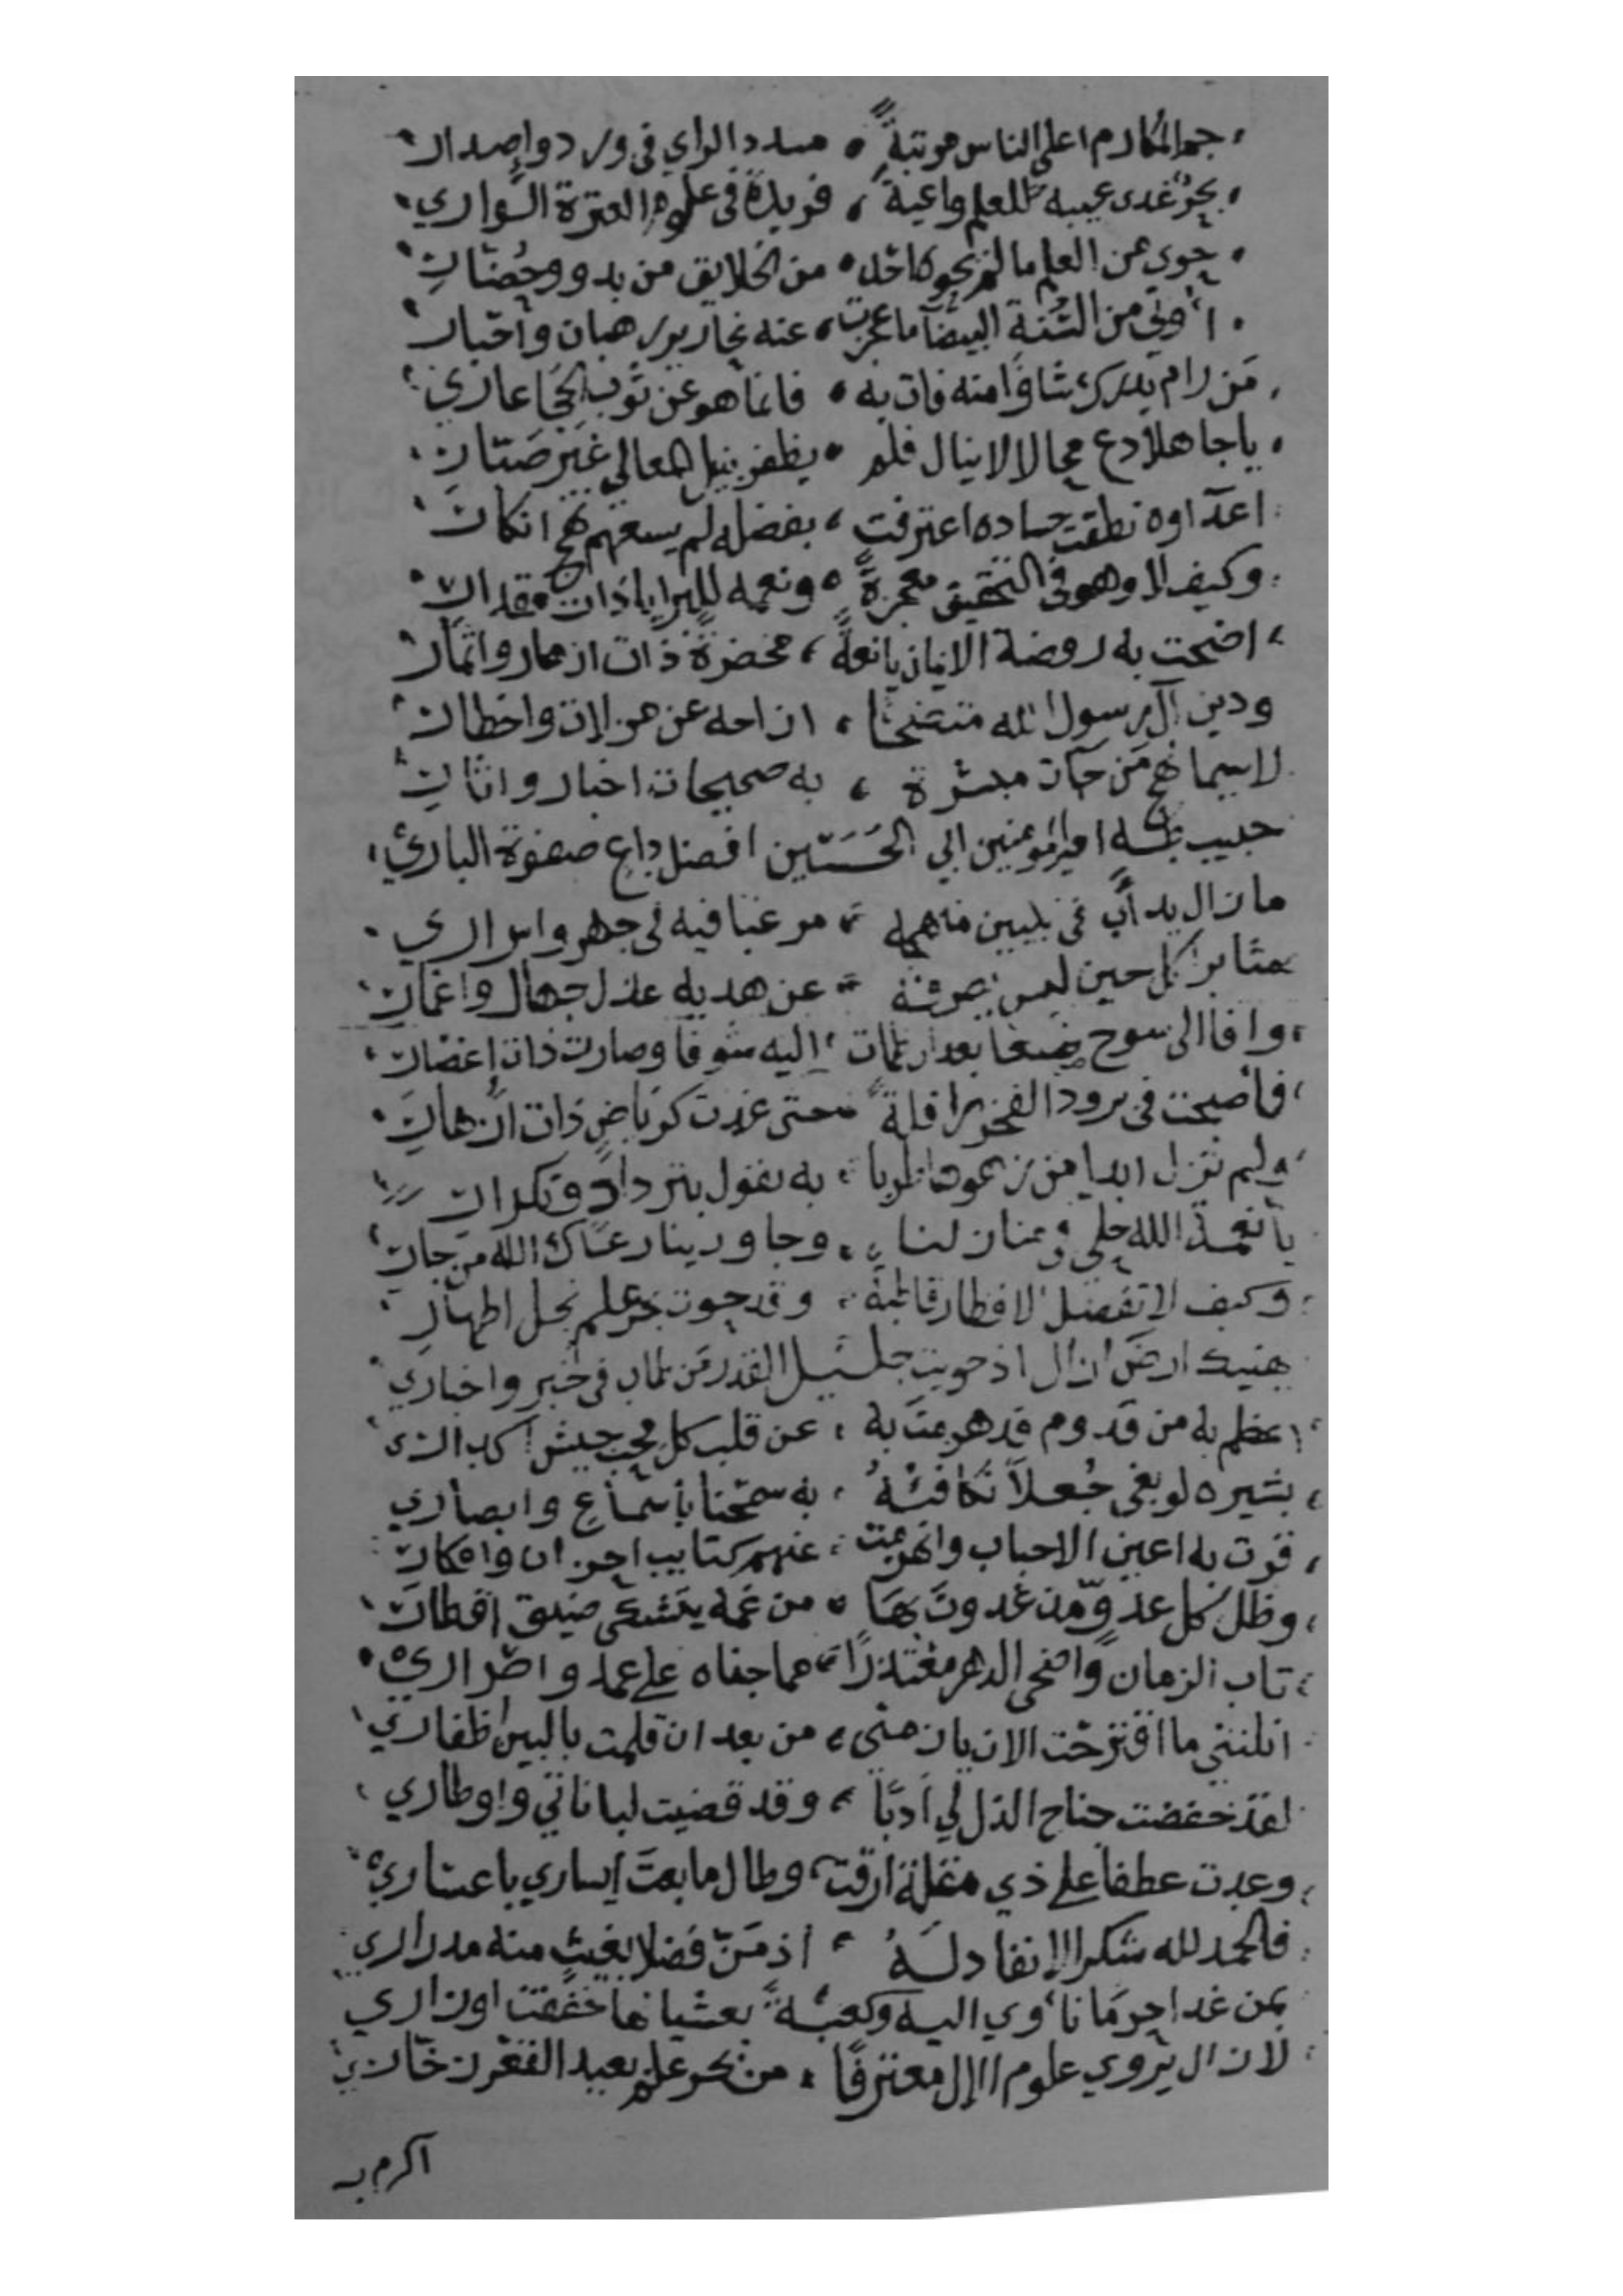 جم المكارم اعلى الناس مرتبةً مسدد الراي في ورد واصدار
بحرٌ غدى عيبه للعلم واعية فريدة في علوم العترة الواري
حوى من العلم ما لم يحوه احد من الخلايق من بدو وحُضّارِ
أوتي من السُّنة البيضآ ما عجزت عنه نحارير رهبان وأحبار
مَن رام يدرك شاوا منه فات به فانما هو عن ثوب الحجا عاري
يا جاهلا دع محالا لا ينال فلم يظفر بنيل المعالي غير صبّار
اعدآؤه نطقت حساده اعترفت بفضله لم يسعهم نهج انكار
وكيف لا وهو في التحقيق معجزةً ونعمه للبرايا ذات مقدار
اضحت به روضة الايمان يانعةً مخضرةً ذات ازهار واثمار
ودين آل رسول الله متضحًا ازاحه عن واخطار
لاسيما نهج مَن جآت مبشرة به صحيحات اخبار واثارِ
حبيب امير المؤمنين ابي الحَسَنين افضل داعٍ صفوة الباري
ما زال يدأب في تبيين مرغبا فيه في جهر واسراري
مثابرا كل حين ليس عن هديه عذل جهال واغمار
وافا الى سوح بعد اليه شوقا وصارت ذات
فأصبحت في برود الفخر رافلةً حتى غدت كرياضٍ ذات ازهار
ولم تزل ابدا من طربا به تقول بترداد وتكرار
يا نعمة الله حلي في منازلنا وجاورينا رعاك الله من جار
وكيف لا تفضل الاقطار قاطبة وقد حوت بحر علم نجل اطهار
يهنيك ارض ازال اذ حويت جليل القدر مَن طاب في خُبرٍ واخباري
اعظم به من قدوم قد هزمت به عن قلب كل محب جيش اكدار
بشيره لو بغى جُعلاً نكافئهُ به سمحنا بأسماع وابصاري
قرت به اعين الاحباب وانهزمت عنهم كتايب احزان وافكار
وظل كل عدوٍّ مذ غدوت بها من غمه يتشكى ضيق اقطار
تاب الزمان واضحى الدهر معتذرًا عما جناه على عمد واضراري
انلتني ما اقترحت الان يا زمني من بعد ان قلمت بالبين اظفاري
لقد خفضت جناح الذل لي أدبًا وقد قضيت لباناتي واوطاري
وعدت عطفا على ذي مقلة ارقت وطال ما بعت ايساري باعساري
فالحمد لله شكرا لا نفاد لَهُ اذ مَنّ فضلا بغيث منه مدراري
بمن غدا حرمًا نأوي اليه وكعبةً بغشيانها خففت اوزاري
لا زال يروي علوم الال معترفًا من بحر علم بعيد القعر زخّار
اكرم به